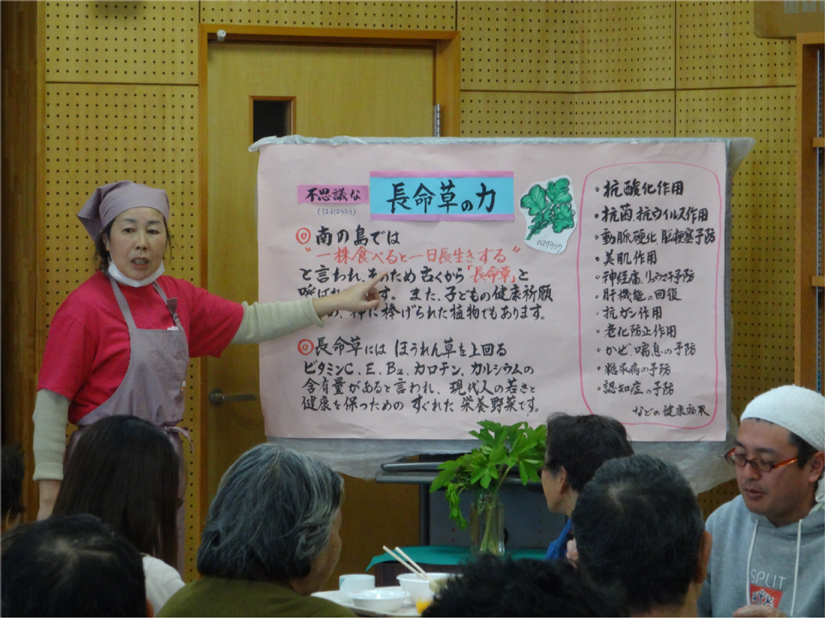 不思議な
長命草の力
◎南の島では
"一株食べると一日長生きする"
と言われ、そのため古くから「長命草」と
呼ばれ す。また、子どもの健康祈願
神に捧げられた植物でもあります。
◎長命草には ほうれん草を上回る
ビタミンC、E、B₂、カロテン、カルシウムの
含有量があると言われ、現代人の若さと
健康を保つための すぐれた 栄養野菜です。
・抗酸化作用
・抗菌、抗ウイルス作用
・動脈硬化、脳梗塞予防
・美肌作用
・神経痛、リュウマチ予防
・肝機能の回復
・抗ガン作用
・老化防止作用
・かぜ、喘息の予防
・糖尿病の予防
・認知症の予防
などの健康効果
SPLIT